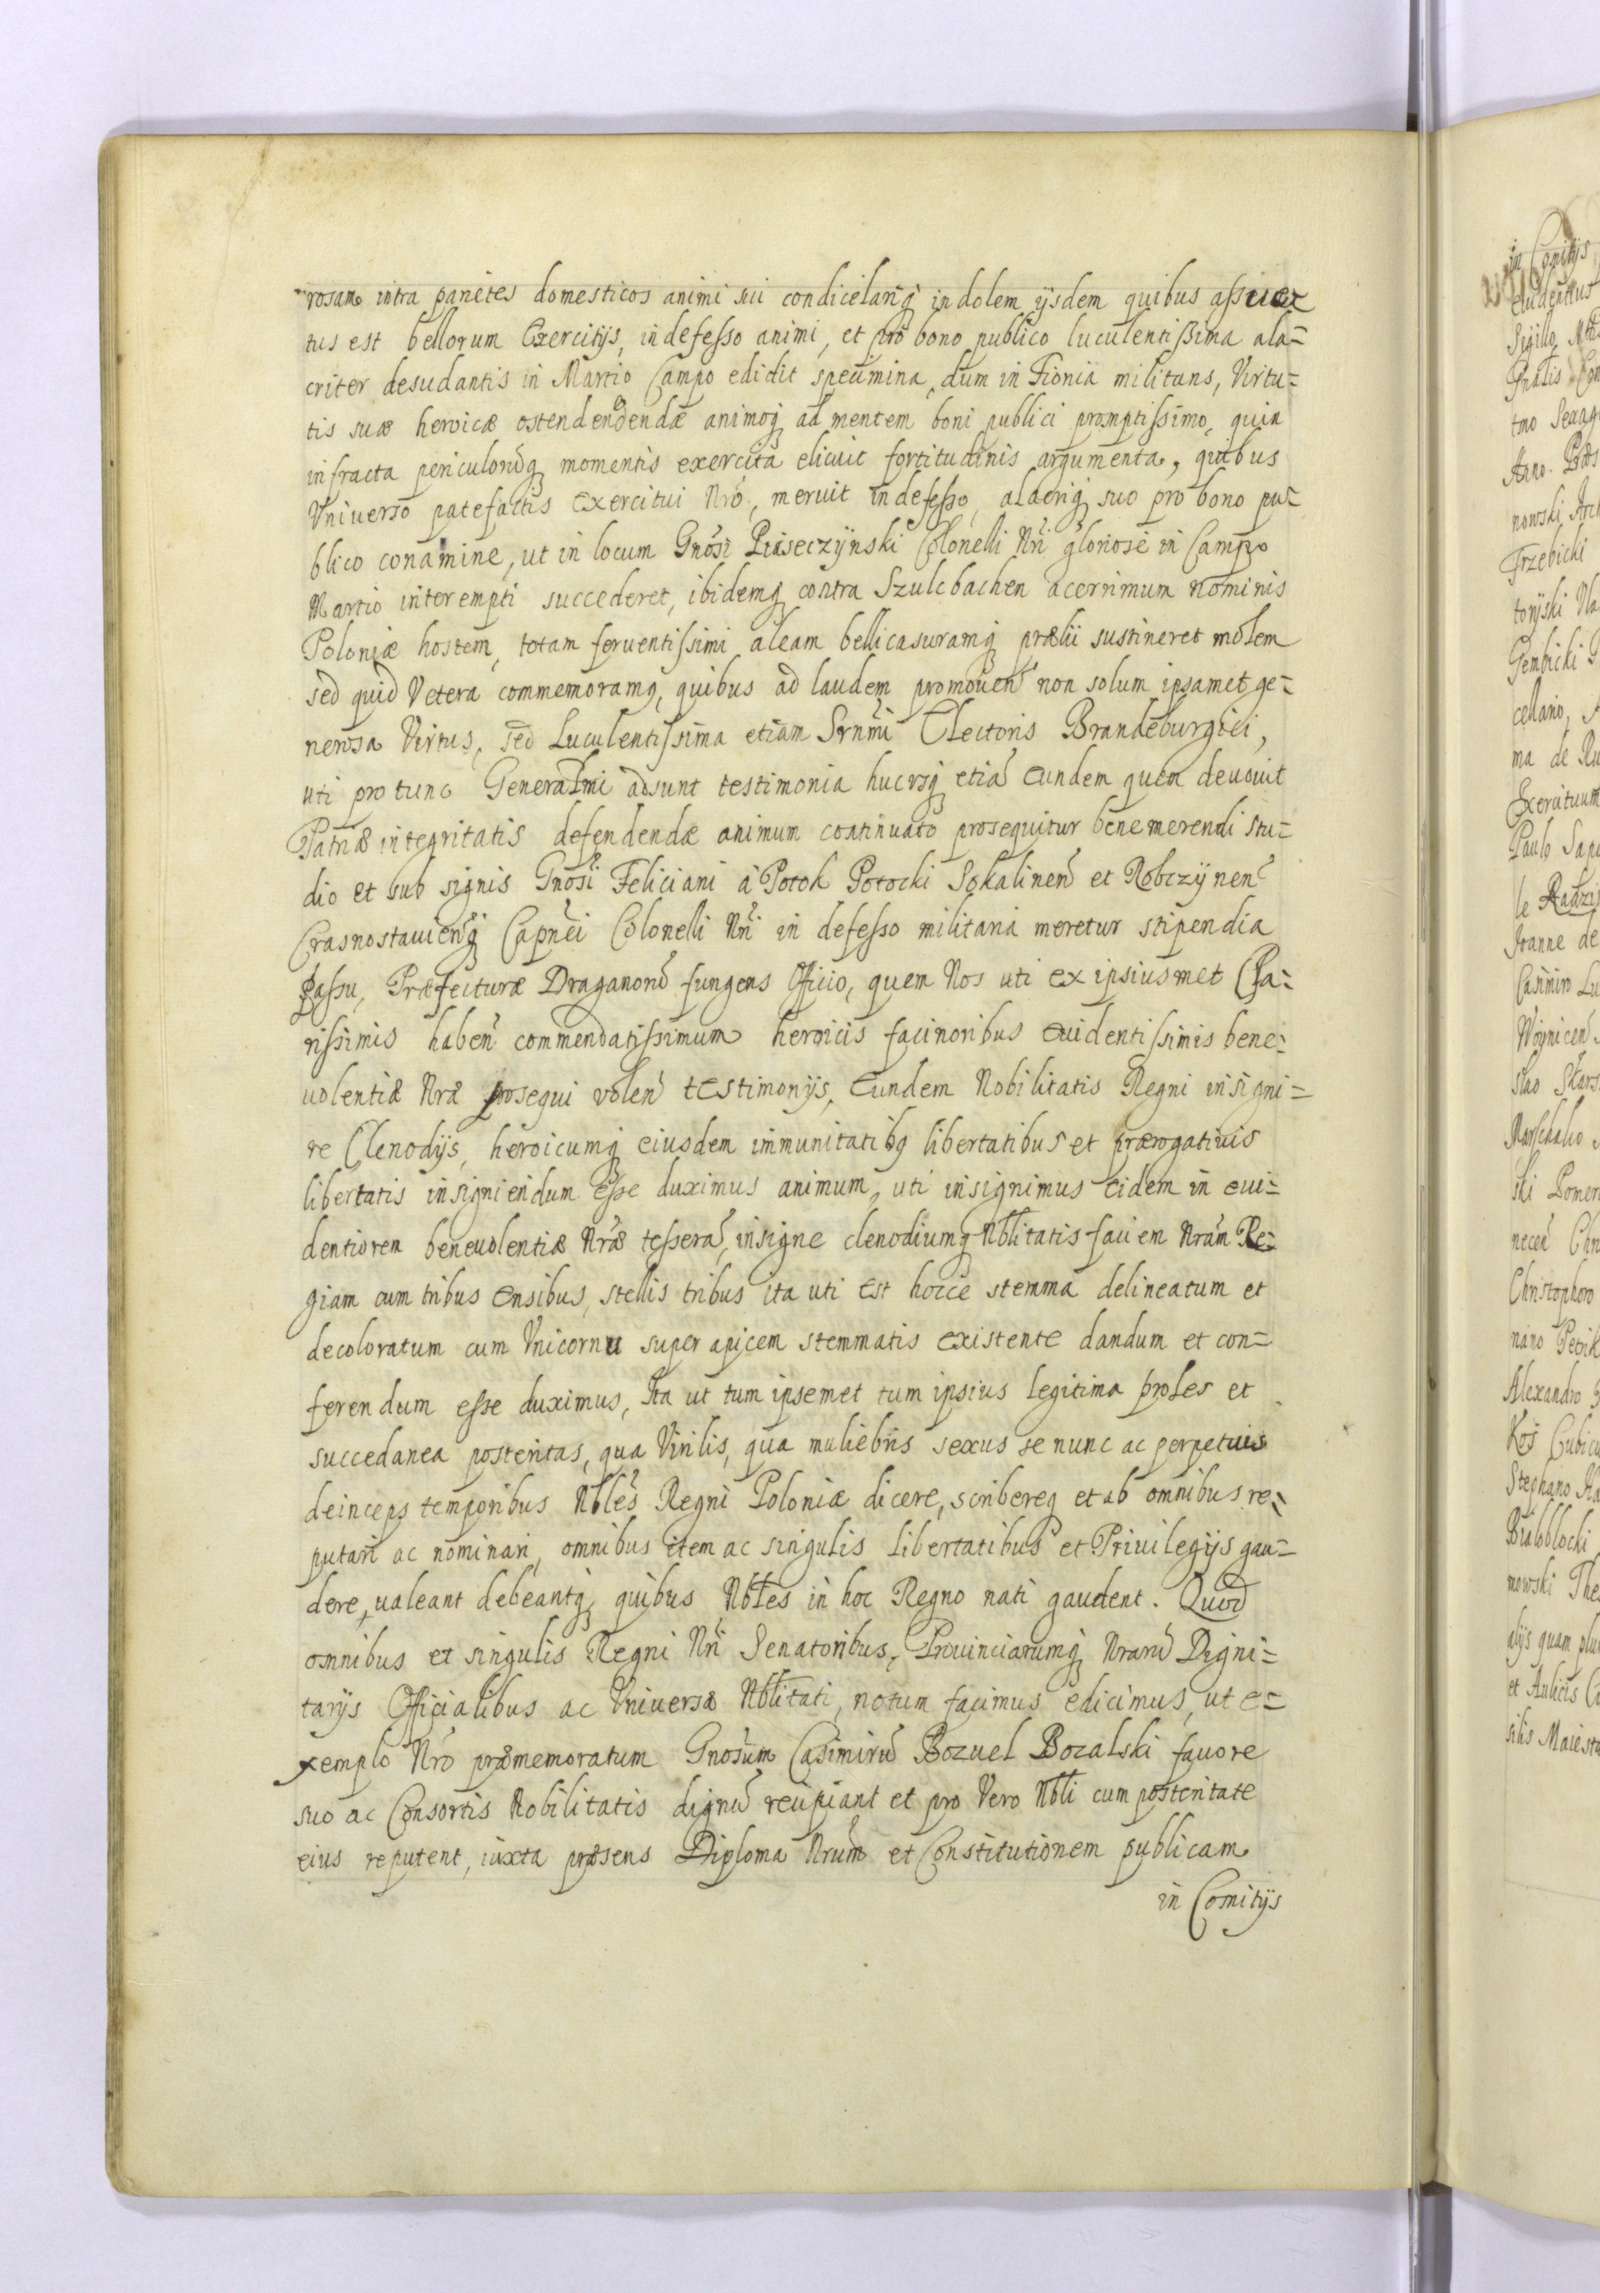 rosam intra parietes domesticos animi sui condicelariq indolem ijsdem quibus assue=
tus est bellorum Exercitijs, indefesso animi, et pro bono publico luculentissima ala=
criter desudantis in Martio Campo edidit specimina, dum in Fionia militans, Virtu=
tis suæ heroicæ ostendendendæ animoq ad mentem boni publici promptissimo, quin
infracta periculorũq momentis exercita elicuit fortitudinis argumenta, quibus
Vniverso patefactis exercitui Nró, meruit indefesso, alacriq suo pro bono pu=
blico conamine, ut in locum Gnosi Piaseczÿnski Colonelli Nri gloriose in Campo
Martio interempti succederet, ibidemq contra Szulcbachen acerrimum nominis
Poloniæ hostem, totam feruentissimi aleam bellicasuramq prælii sustineret molem
sed quid Vetera commemoramq, quibus ad laudem promouen non solum ipsamet ge=
nerosa Virtus, sed Luculentissima etiam Srnmi Electoris Brandeburgici,
uti pro tunc Generalmi adsunt testimonia hucusq etiã eundem quem deuouit
Patriæ integritatis defendendæ animum continuato prosequitur bene merendi stu=
dio et sub signis Gnosi Feliciani à Potok Potocki Sokalinen et Robczÿnen
Crasnostauienq Capnei Colonelli Nri in defesso militaria meretur stipendia
passu, Præfecturæ Draganorũ fungens Officio, quem Nos uti ex ipsiusmet Cla=
rissimis haben commendatissimum heroicis facinoribus euidentissimis bene=
uolentiæ Nræ prosequi volen testimonijs, Eundem Nobilitatis Regni insigni=
re Clenodijs, heroicumq eiusdem immunitatibq libertatibus et prærogatiuis
libertatis insigniendum esse duximus animum, uti insignimus eidem in eui=
dentiorem beneuolentiæ Nræ tesserã, insigne clenodiumq Nblitatis faciem Nram Re=
giam cum tribus ensibus, stellis tribus ita uti est hocce stemma delineatum et
decoloratum cum Vnicornu super apicem stemmatis existente dandum et con=
ferendum esse duximus, Ita ut tum ipsemet tum ipsius legitima proles et
succedanea posteritas, qua Virilis, qua muliebris sexus se nunc ac perpetuis
deinceps temporibus Nbles Regni Poloniæ dicere, scribereq et ab omnibus re=
putari ac nominari, omnibus item ac singulis libertatibus et Priuilegijs gau=
dere, ualeant debeantq, quibus Nbles in hoc Regno nati gaudent. Quod
omnibus et singulis Regni Nri Senatoribus, Prouinciarumq Nrarũ Digni=
tarijs Officialibus ac Vniversæ Nblitati, notum facimus edicimus, ut e=
xemplo Nró præmemoratum Gnosum Casimirũ Bozuel Bozalski fauore
suo ac Consortis Nobilitatis dignũ recipiant et pro Vero Nbli cum posteritate
eius reputent, iuxta præsens Diploma Nrum et Constitutionem publicam
in Comitijs